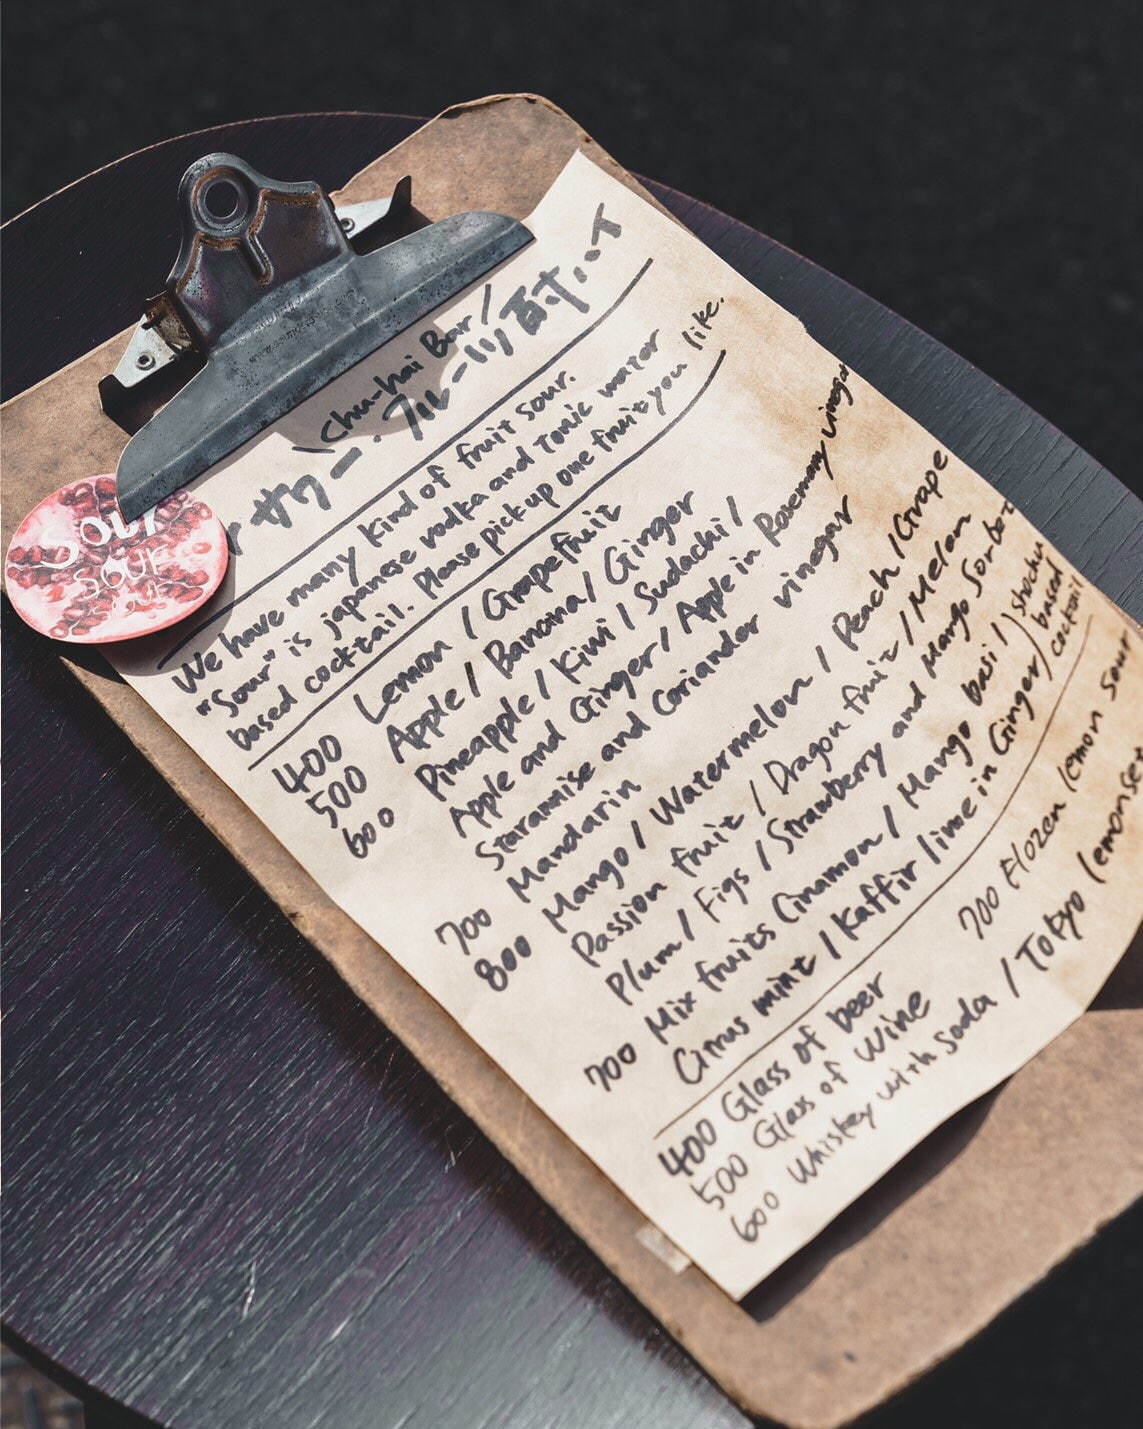 Sour
SOUR
Sour
(Chu-hai Bar /
サワー・フルーツ酎ハイ
We have many kind of fruit sour.
"Sour" is japanese vodka and tonic water
based cocktail. Please pick up one fruit you like.
400 Lemon / Grapefruit
500 Apple / Banana / Ginger
600 Pineapple / Kiwi / Sudachi /
Apple and Ginger / Apple in Rosemary vinegar
Starannise and Coriander vinegar
Mandarin
700 Mango / Watermelon / Peach / Grape
800 Passion fruit / Dragon fruit / Melon
Plum / Figs / Strawberry and Mango Sorbet
700 Mix fruits Cinamon / Mango basil /
Citrus mint / Kaffir lime in Ginger
) shochu
based
cocktail
700 Flozen lemon sour
400 Glass of beer
500 Glass of Wine
600 Whiskey with Soda / Tokyo lemonse